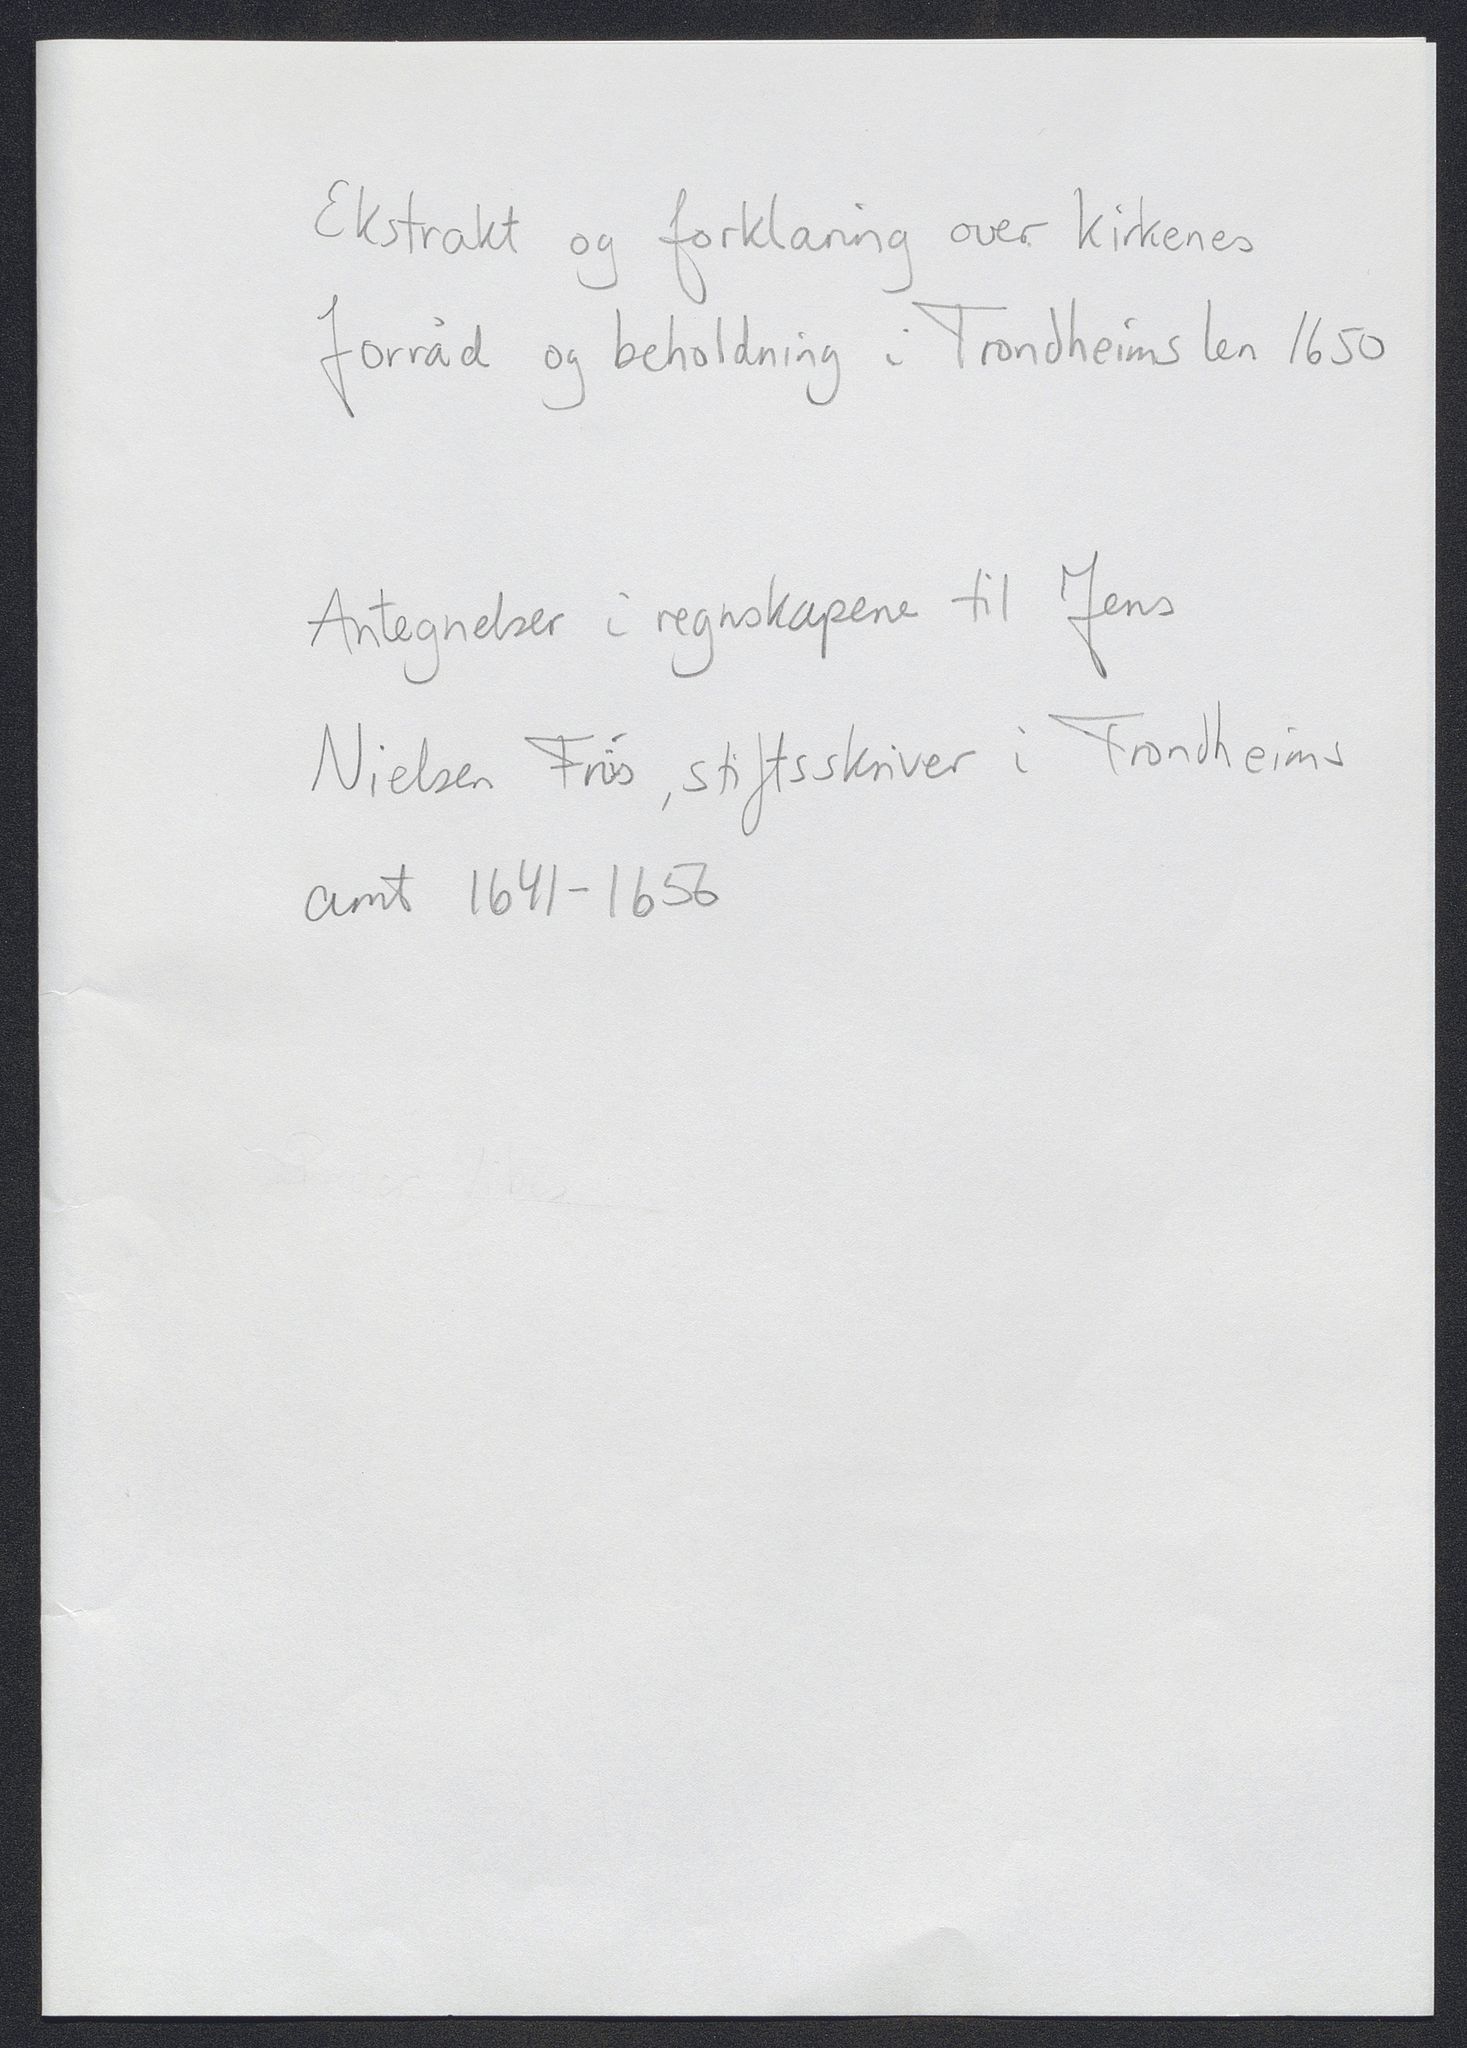 Ekstrakt og forklaring over kirkenes
forråd og beholdning i Trondheims len 1650
Antegnelser i regnskapene til Jens
Nielsen Friis, stiftsskriver i Trondheims
amt 1641-1656